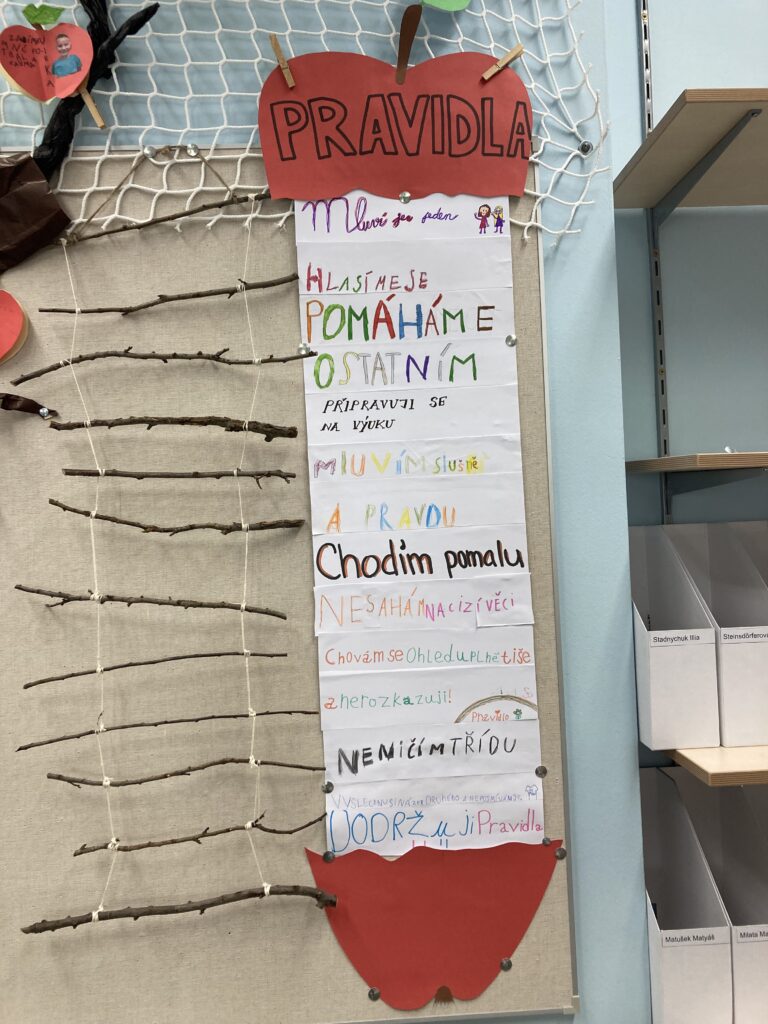 PRAVIDLA
Mluví jen jeden
HLASÍME SE
POMÁHÁME
OSTATNÍM
PŘIPRAVUJI SE
NA VÝUKU
MLUVÍM SLUŠNĚ
A PRAVDU
Chodím pomalu
NESAHÁM NA CIZÍ VĚCI
Chovám se Ohleduplně tiše
a nerozkazuji!
Pravidlo
NENIČÍM TŘÍDU
VYSLECHNU SI NÁZOR DRUHÉHO A
DODRŽuji Pravidla
Stadnychuk Illia
Steinsdörferová
Matušek Matyáš
Milata Ma